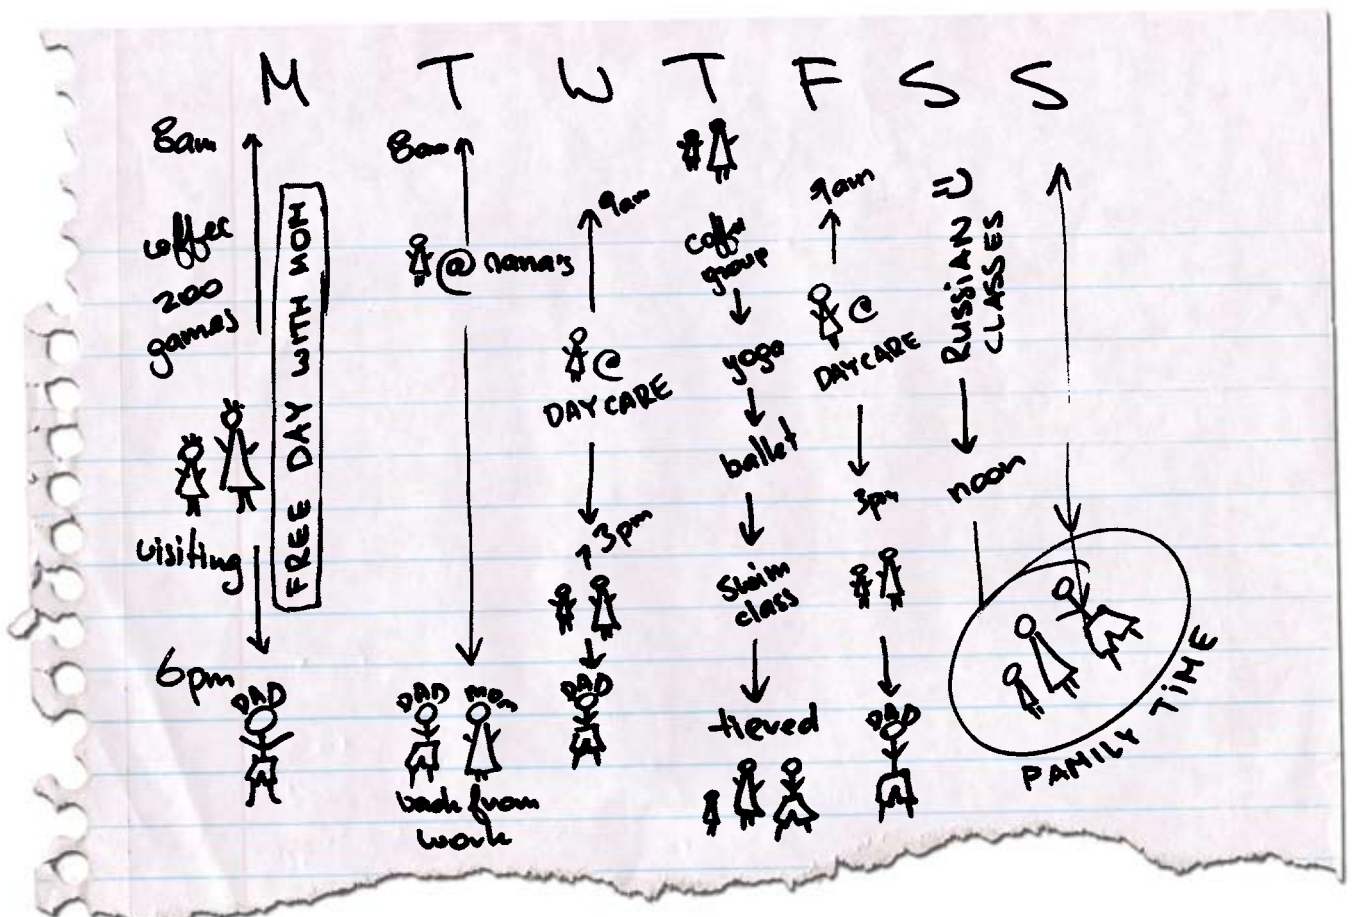 M T W T F S S
8am
coffee
200
games
FREE DAY WITH MOM
visiting
6pm
DAD
8am
@ nana's
DAD MOM
back from
work
9am
@
DAYCARE
3pm
DAD
coffee
group
yoga
ballet
swim
class
tieved
9am
@
DAYCARE
3pm
DAD
RUSSIAN =)
CLASSES
noon
FAMILY TIME